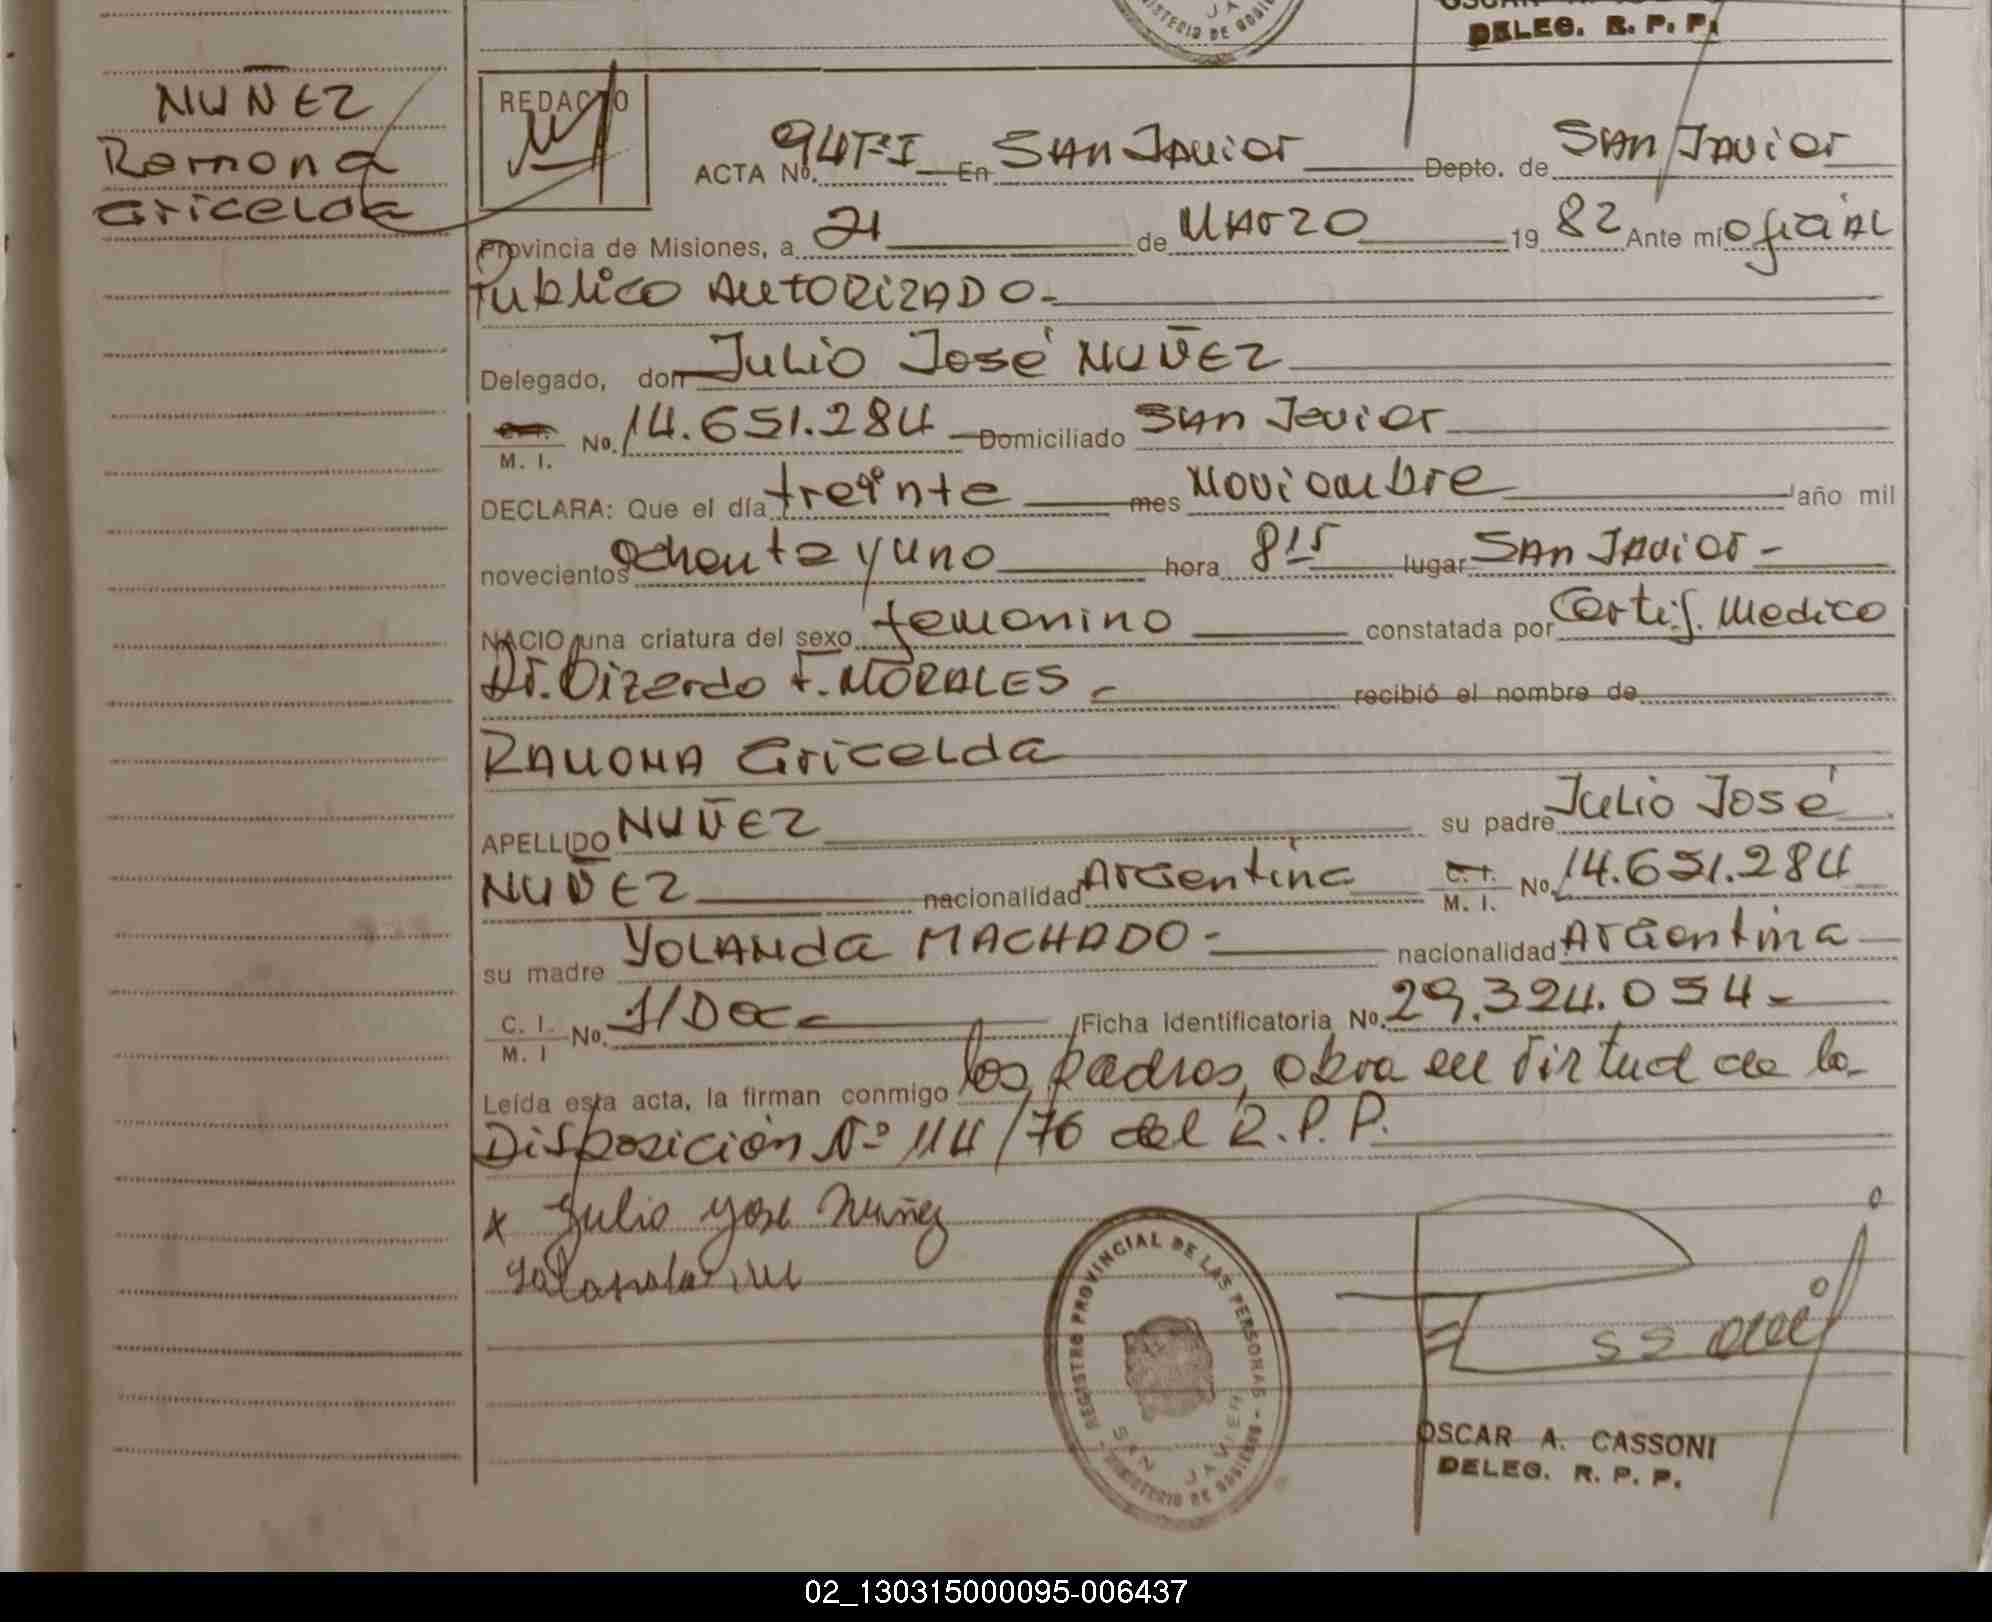 DELEG. R. P. P.
NUÑEZ
Ramona
Gricelda
REDACTO
ACTA No. 94 Tº I En San Javier Depto. de San Javier
Provincia de Misiones, a 21 de Marzo 1982 Ante mi oficial
Publico AUTORIZADO.-
Delegado, don Julio José NUÑEZ
C. I. / M. I. No. 14.651.284 Domiciliado San Javier
DECLARA: Que el día treinta mes Noviembre año mil
novecientos ochenta y uno hora 8 15 lugar San Javier -
NACIO una criatura del sexo femenino constatada por Certif. Medico
Dr. F. MORALES - recibió el nombre de
RAMONA Gricelda
APELLIDO NUÑEZ su padre Julio José
NUÑEZ nacionalidad Argentina C. I. / M. I. No. 14.651.284
su madre YOLANda MACHADO - nacionalidad Argentina
C. I. / M. I No. S/Doc - Ficha identificatoria No. 29.324.054 -
Leída esta acta, la firman conmigo los padres, obra en virtud de la
Disposición Nº 114/76 del R.P.P.
x Julio Jose Nuñez
REGISTRO PROVINCIAL DE LAS PERSONAS - MINISTERIO DE GOBIERNO -
SAN JAVIER
OSCAR A. CASSONI
DELEG. R. P. P.
02_130315000095-006437